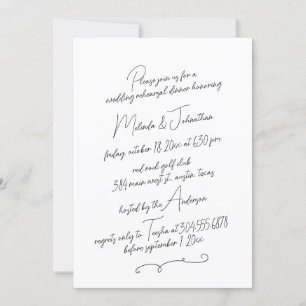 Please join us for a
wedding rehearsal dinner honoring
Melinda & Johnathan
friday, october 18, 20xx at 6:30 pm
red rock golf club
384 main west st., austin, texas
hosted by the Anderson
regrets only to Teesha at 304.555.6878
before september 1, 20xx